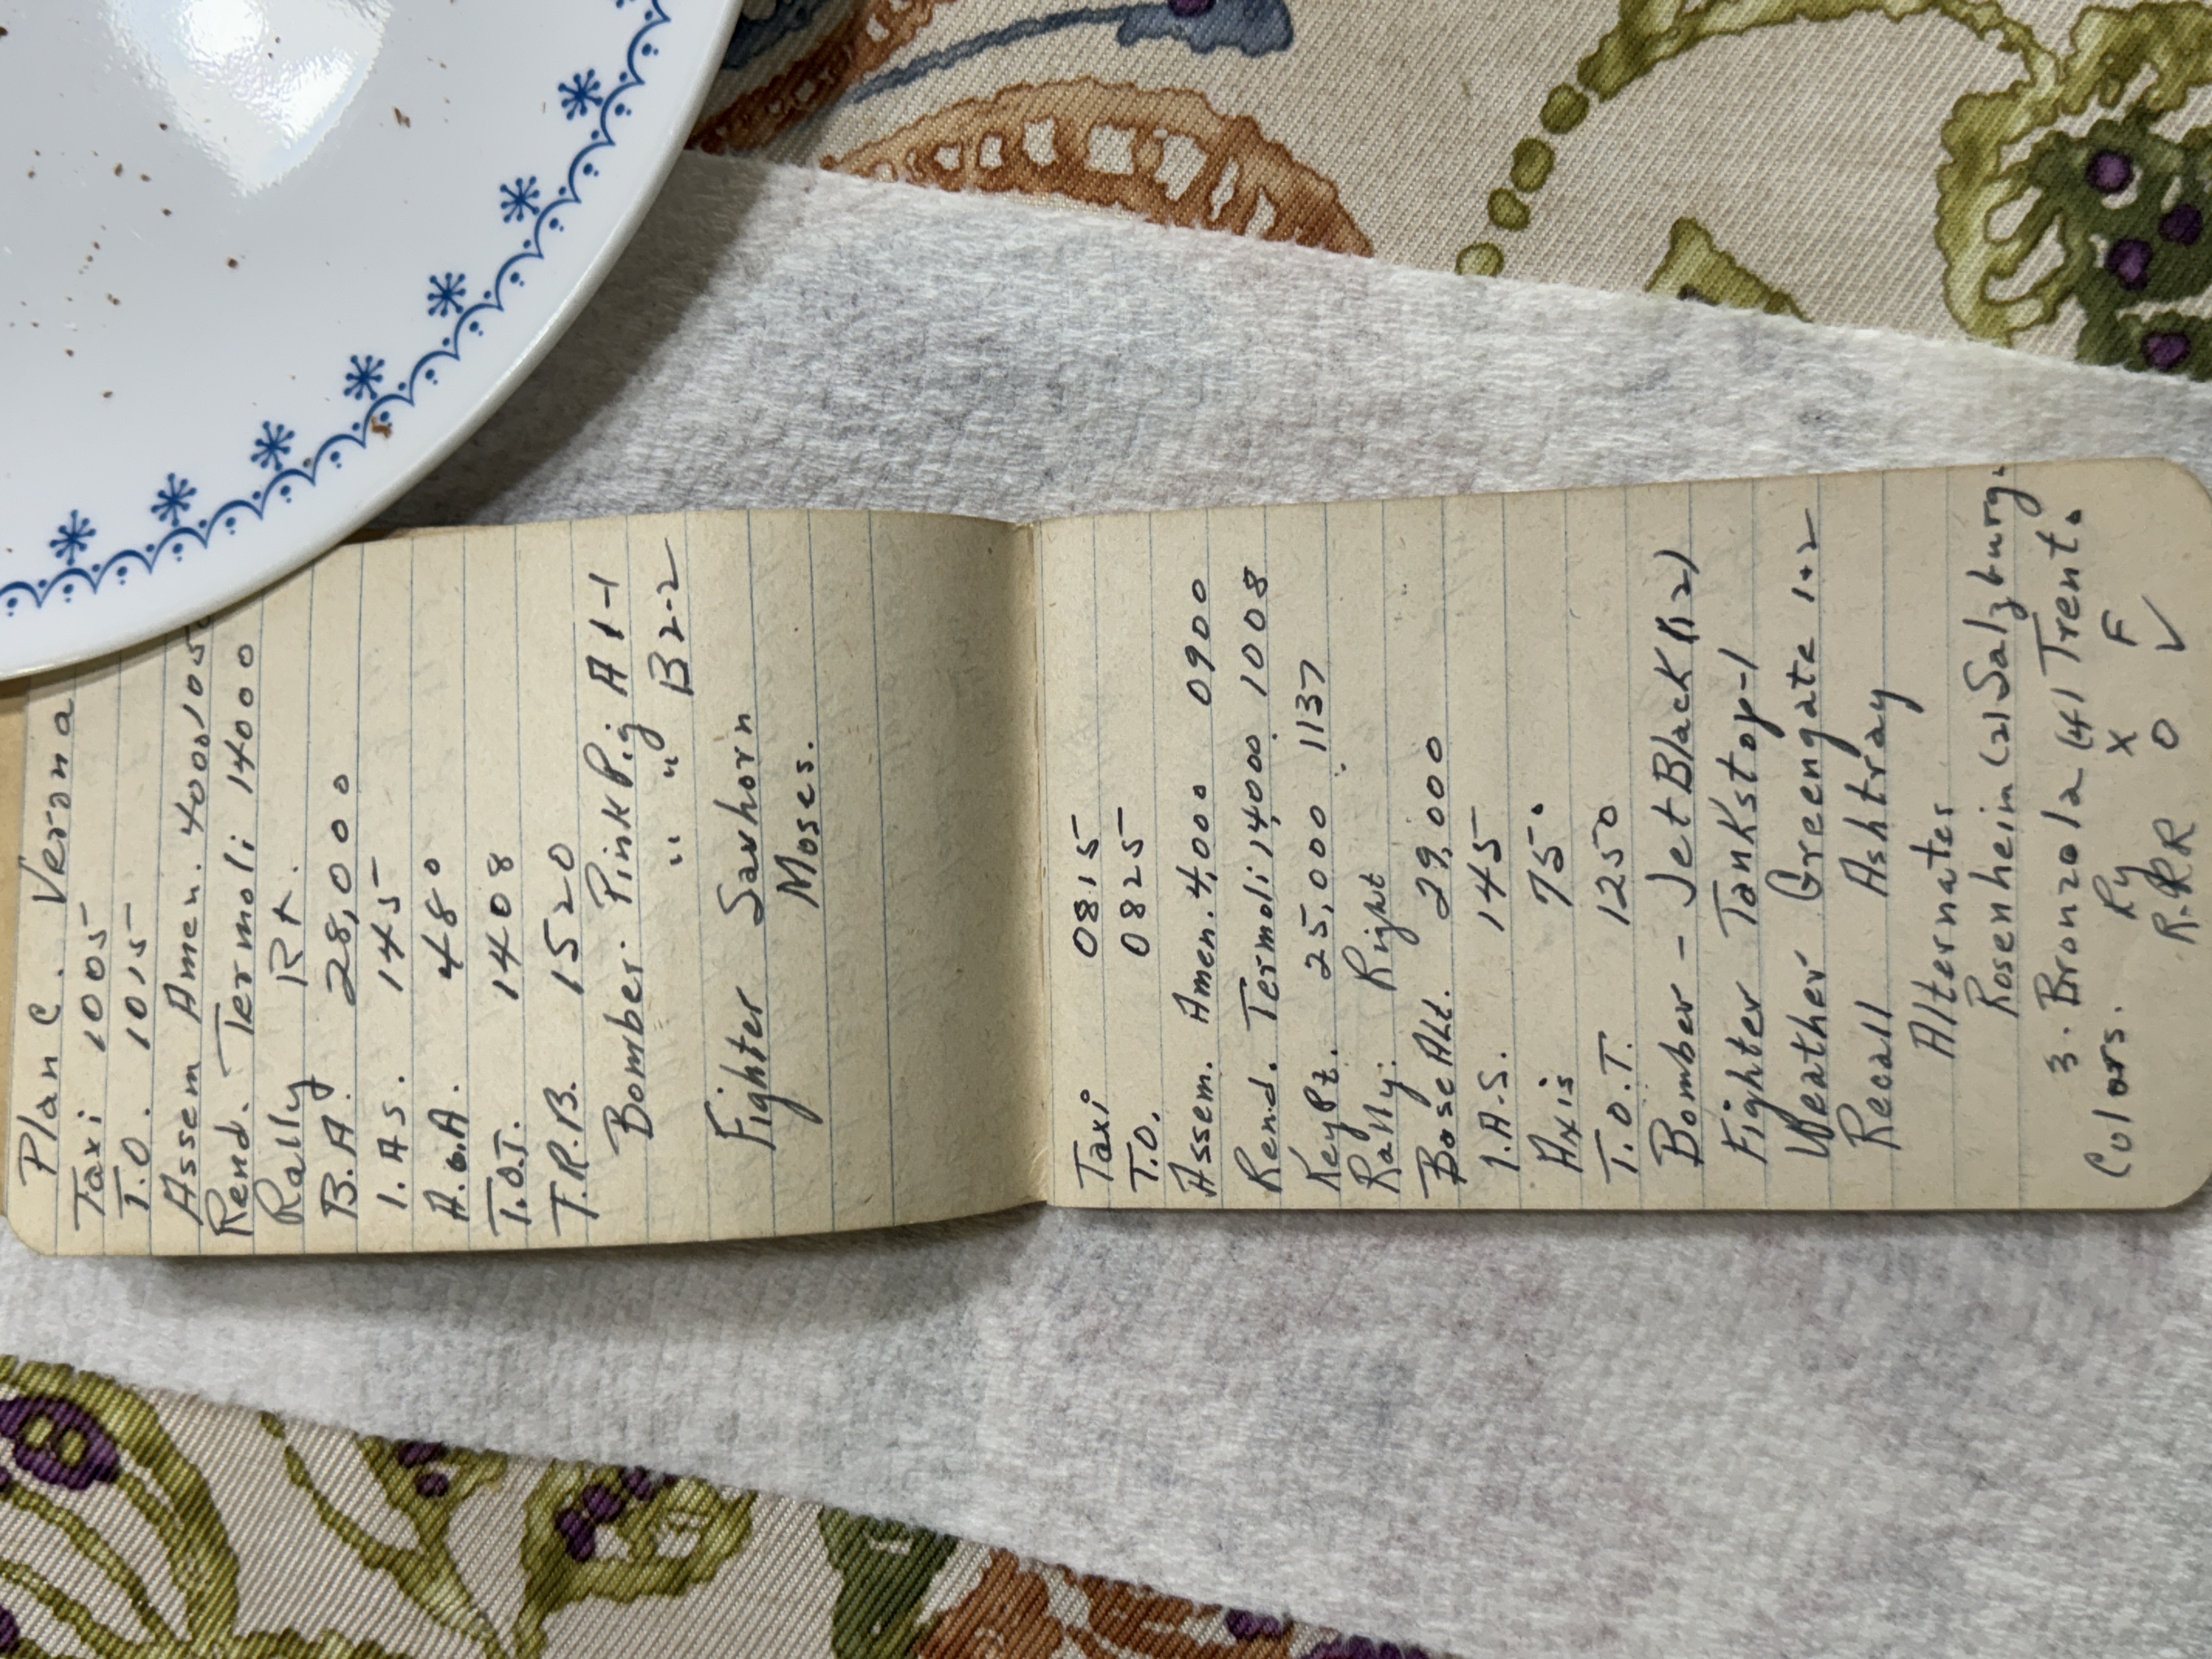 Plan C. Verona
Taxi 1005
T.O. 1015
Assem Amen. 4000, 105
Rend. Termoli 14000
Rally Rt.
B.A. 28,000
I.A.S. 145
A.O.A. 480
T.O.T. 1408
T.R.B. 1520
Bomber: Pink Pig A 1-1
" " B2-2
Fighter Saxhorn
Moses.
Taxi 0815
T.O. 0825
Assem. Amen. 4,000 0900
Rend. Termoli 14,000. 1008
Key Pt. 25,000 1137
Rally: Right
Base Alt. 29,000
I.A.S. 145
Axis 75°
T.O.T. 1250
Bomber - Jet Black (12)
Fighter Tankstop-1
Weather Greengate 1+2
Recall Ashtray
Alternates
Rosenheim (2) Salzburg.
3. Bronzola (4) Trent.
Colors. Ry X F
R.RR O V